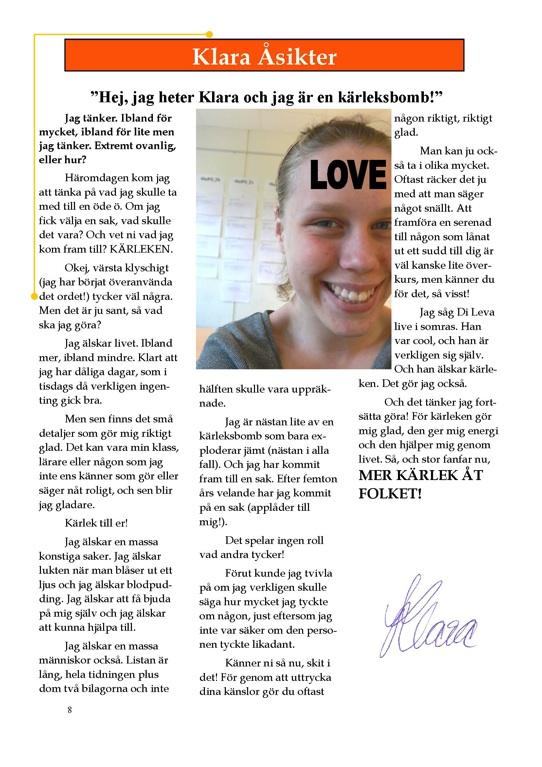 Klara Åsikter
”Hej, jag heter Klara och jag är en kärleksbomb!”
Jag tänker. Ibland för
mycket, ibland för lite men
jag tänker. Extremt ovanlig,
eller hur?
Häromdagen kom jag
att tänka på vad jag skulle ta
med till en öde ö. Om jag
fick välja en sak, vad skulle
det vara? Och vet ni vad jag
kom fram till? KÄRLEKEN.
Okej, värsta klyschigt
(jag har börjat överanvända
det ordet!) tycker väl några.
Men det är ju sant, så vad
ska jag göra?
Jag älskar livet. Ibland
mer, ibland mindre. Klart att
jag har dåliga dagar, som i
tisdags då verkligen ingen-
ting gick bra.
Men sen finns det små
detaljer som gör mig riktigt
glad. Det kan vara min klass,
lärare eller någon som jag
inte ens känner som gör eller
säger nåt roligt, och sen blir
jag gladare.
Kärlek till er!
Jag älskar en massa
konstiga saker. Jag älskar
lukten när man blåser ut ett
ljus och jag älskar blodpud-
ding. Jag älskar att få bjuda
på mig själv och jag älskar
att kunna hjälpa till.
Jag älskar en massa
människor också. Listan är
lång, hela tidningen plus
dom två bilagorna och inte
LOVE
hälften skulle vara uppräk-
nade.
Jag är nästan lite av en
kärleksbomb som bara ex-
ploderar jämt (nästan i alla
fall). Och jag har kommit
fram till en sak. Efter femton
års velande har jag kommit
på en sak (applåder till
mig!).
Det spelar ingen roll
vad andra tycker!
Förut kunde jag tvivla
på om jag verkligen skulle
säga hur mycket jag tyckte
om någon, just eftersom jag
inte var säker om den perso-
nen tyckte likadant.
Känner ni så nu, skit i
det! För genom att uttrycka
dina känslor gör du oftast
någon riktigt, riktigt
glad.
Man kan ju ock-
så ta i olika mycket.
Oftast räcker det ju
med att man säger
något snällt. Att
framföra en serenad
till någon som lånat
ut ett sudd till dig är
väl kanske lite över-
kurs, men känner du
för det, så visst!
Jag såg Di Leva
live i somras. Han
var cool, och han är
verkligen sig själv.
Och han älskar kärle-
ken. Det gör jag också.
Och det tänker jag fort-
sätta göra! För kärleken gör
mig glad, den ger mig energi
och den hjälper mig genom
livet. Så, och stor fanfar nu,
MER KÄRLEK ÅT
FOLKET!
Klara
8